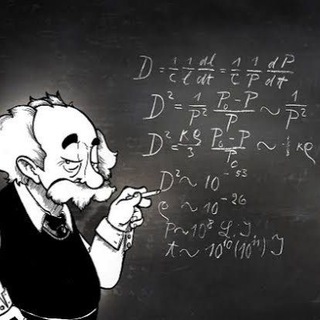 D = 1/c 1/l dl/dt = 1/c 1/P dP/dt
D² = 1/P² P₀-P/P ~ 1/P²
D² = κρ/3 P₀-P/P₀ ~ 1/3 κρ
D² ~ 10⁻⁵³
ρ ~ 10⁻²⁶
P ~ 10⁸ L. J.
t ~ 10¹⁰(10¹¹) J